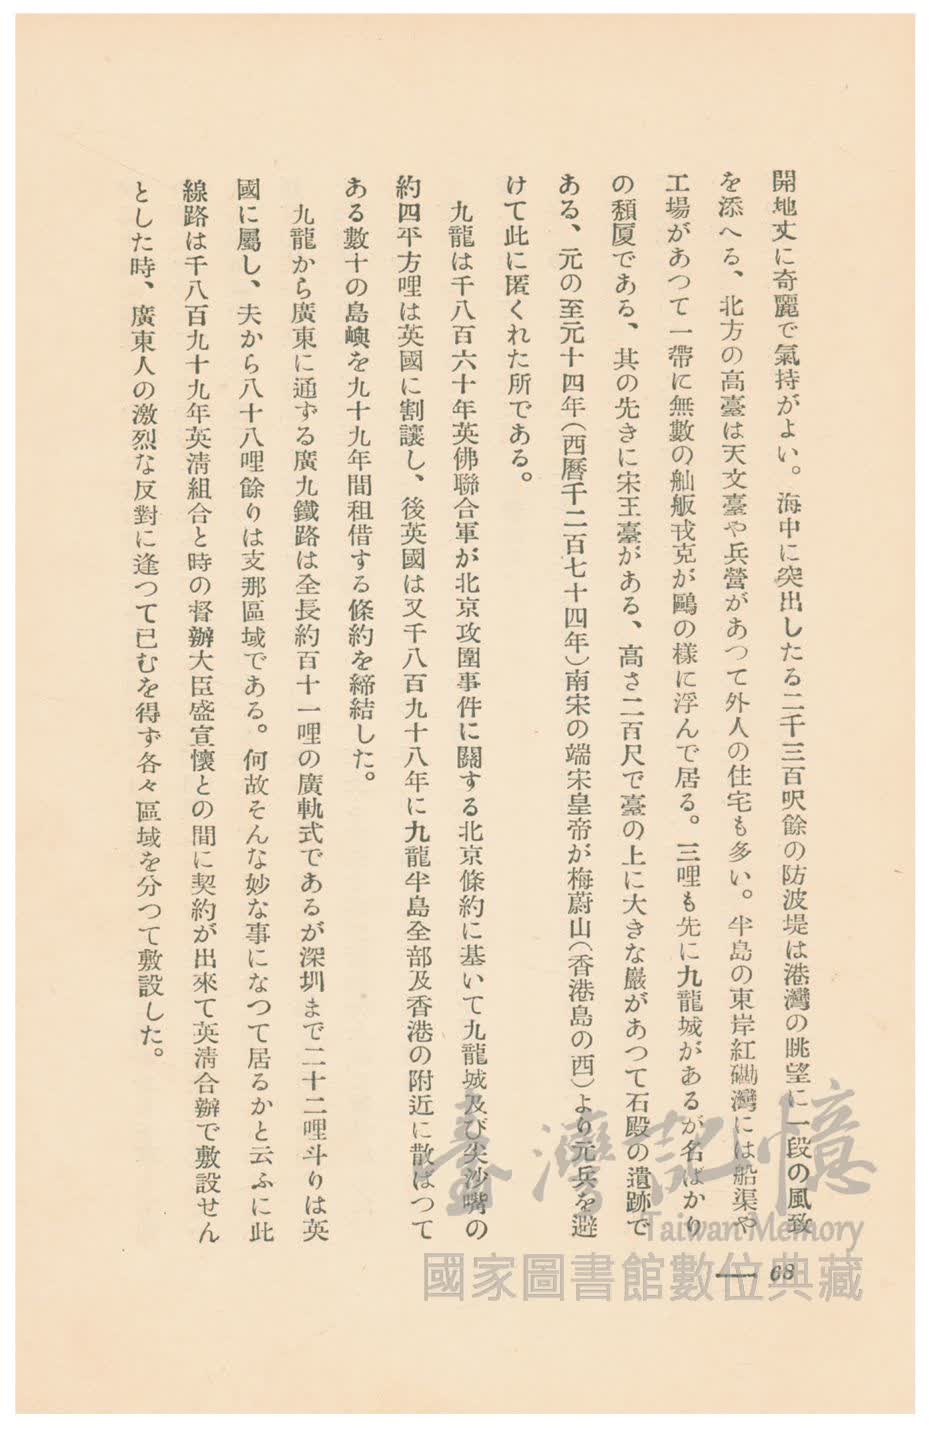 開地丈に奇麗で氣持がよい。海中に突出したる二千三百呎餘の防波堤は港灣の眺望に一段の風致
を添へる、北方の高臺は天文臺や兵營があつて外人の住宅も多い。半島の東岸紅磡灣には船渠や
工場があつて一帶に無數の舢舨戎克が鷗の樣に浮んで居る。三哩も先に九龍城があるが名ばかり
の頽廈である、其の先きに宋王臺がある、高さ二百尺で臺の上に大きな巖があつて石殿の遺跡で
ある、元の至元十四年(西曆千二百七十四年)南宋の端宋皇帝が梅蔚山(香港島の西)より元兵を避
けて此に匿くれた所である。
九龍は千八百六十年英佛聯合軍が北京攻圍事件に關する北京條約に基いて九龍城及び尖沙嘴の
約四平方哩は英國に割讓し、後英國は又千八百九十八年に九龍半島全部及香港の附近に散ばつて
ある數十の島嶼を九十九年間租借する條約を締結した。
九龍から廣東に通ずる廣九鐵路は全長約百十一哩の廣軌式であるが深圳まで二十二哩斗りは英
國に屬し、夫から八十八哩餘りは支那區域である。何故そんな妙な事になつて居るかと云ふに此
線路は千八百九十九年英淸組合と時の督辦大臣盛宣懷との間に契約が出來て英淸合辦で敷設せん
とした時、廣東人の激烈な反對に逢つて已むを得ず各々區域を分つて敷設した。
— 68
臺灣記憶
Taiwan Memory
國家圖書館數位典藏